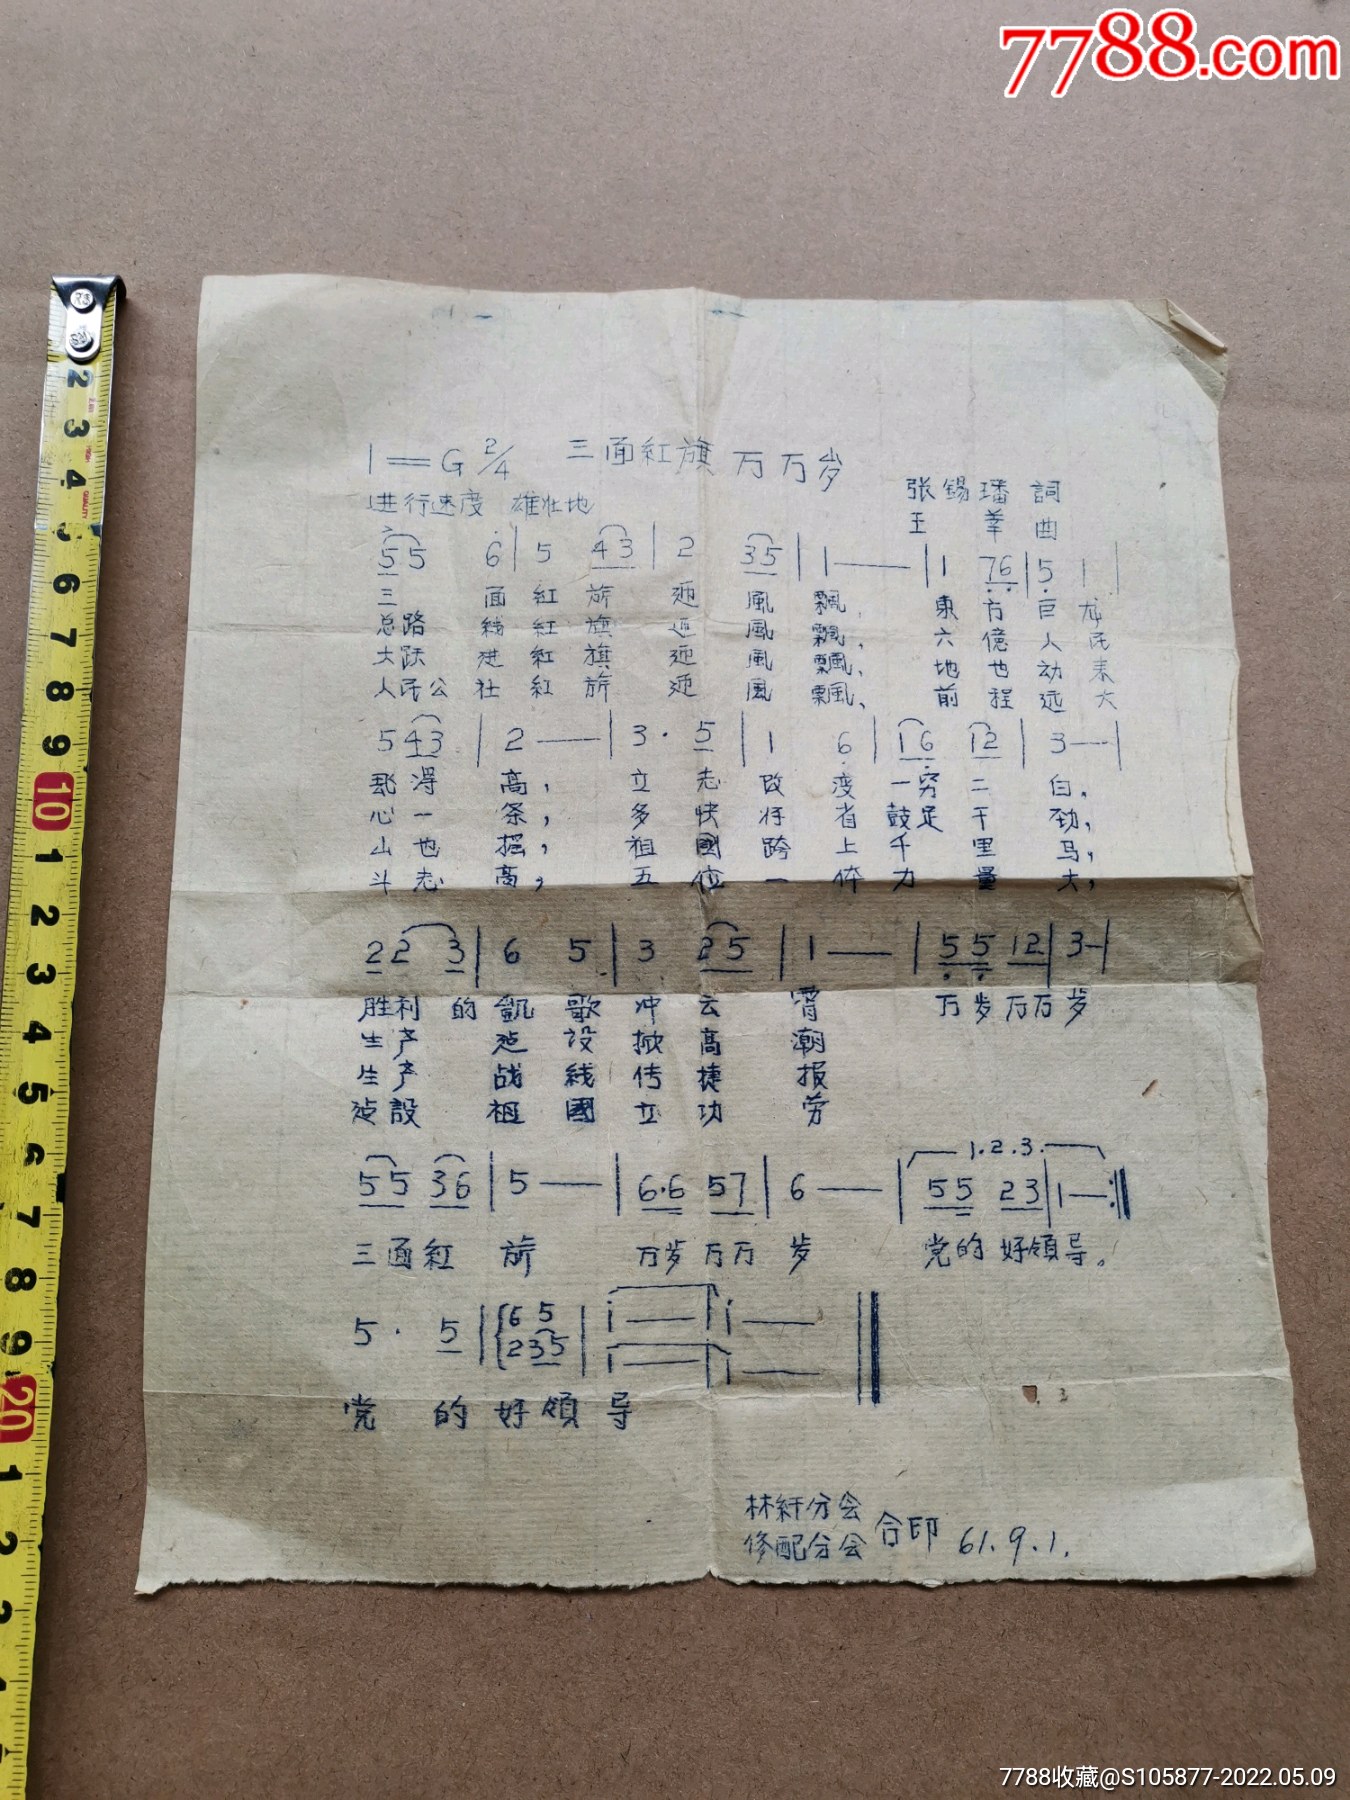 7788.com
1=G 2/4 三面紅旗万万岁
进行速度 雄壮地 张锡璠 詞
王 莘 曲
5 5 6 | 5 4 3 | 2 3 5 | 1 — | 1 7 6 | 5 1 |
三 面 紅 旂 迎 風 飄, 東 方 巨 龙
总路 线 紅 旗 迎 風 飄, 六 億 人 民
大跃 进 紅 旗 迎 風 飄, 地 也 动 来
人民公 社 紅 旂 迎 風 飄, 前 程 远 大
5 4 3 | 2 — | 3 · 5 | 1 6 | 1 6 1 2 | 3 — |
起 得 高, 立 志 改 变 一穷 二 白,
心 一 条, 多 快 好 省 鼓足 干 劲,
山 也 摇, 祖 國 跨 上 千 里 马,
斗 志 高, 五 位 一 体 力 量 大,
2 2 3 | 6 5 | 3 2 5 | 1 — | 5 5 1 2 | 3 — |
胜利 的 凱 歌 冲 云 霄 万岁万万 岁
生产 建 设 掀 高 潮
生产 战 线 传 捷 报
建設 祖 國 立 功 劳
1.2.3.
5 5 3 6 | 5 — | 6·6 5 7 | 6 — | 5 5 2 3 | 1 — :‖
三面紅 旂 万岁万万 岁 党的好領导。
5 · 5 | 6 5 | i — | i — ‖
2 3 5 | i — | i —
党 的好領导
林紅分会
修配分会 合印 61.9.1.
7788收藏@S105877-2022.05.09